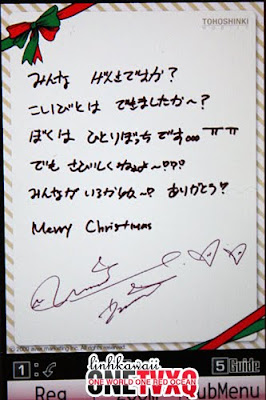 TOHOSHINKI
みんな げんきですか?
こいびとは できましたか〜?
ぼくは ひとりぼっちです。。。ㅠㅠ
でも さびしくねぇよ〜???
みんながいるからね〜? ありがとう?
Merry Christmas
1:
5 Guide
linhkawaii
ONETVXQ
ONE WORLD ONE RED OCEAN
Reg
SubMenu